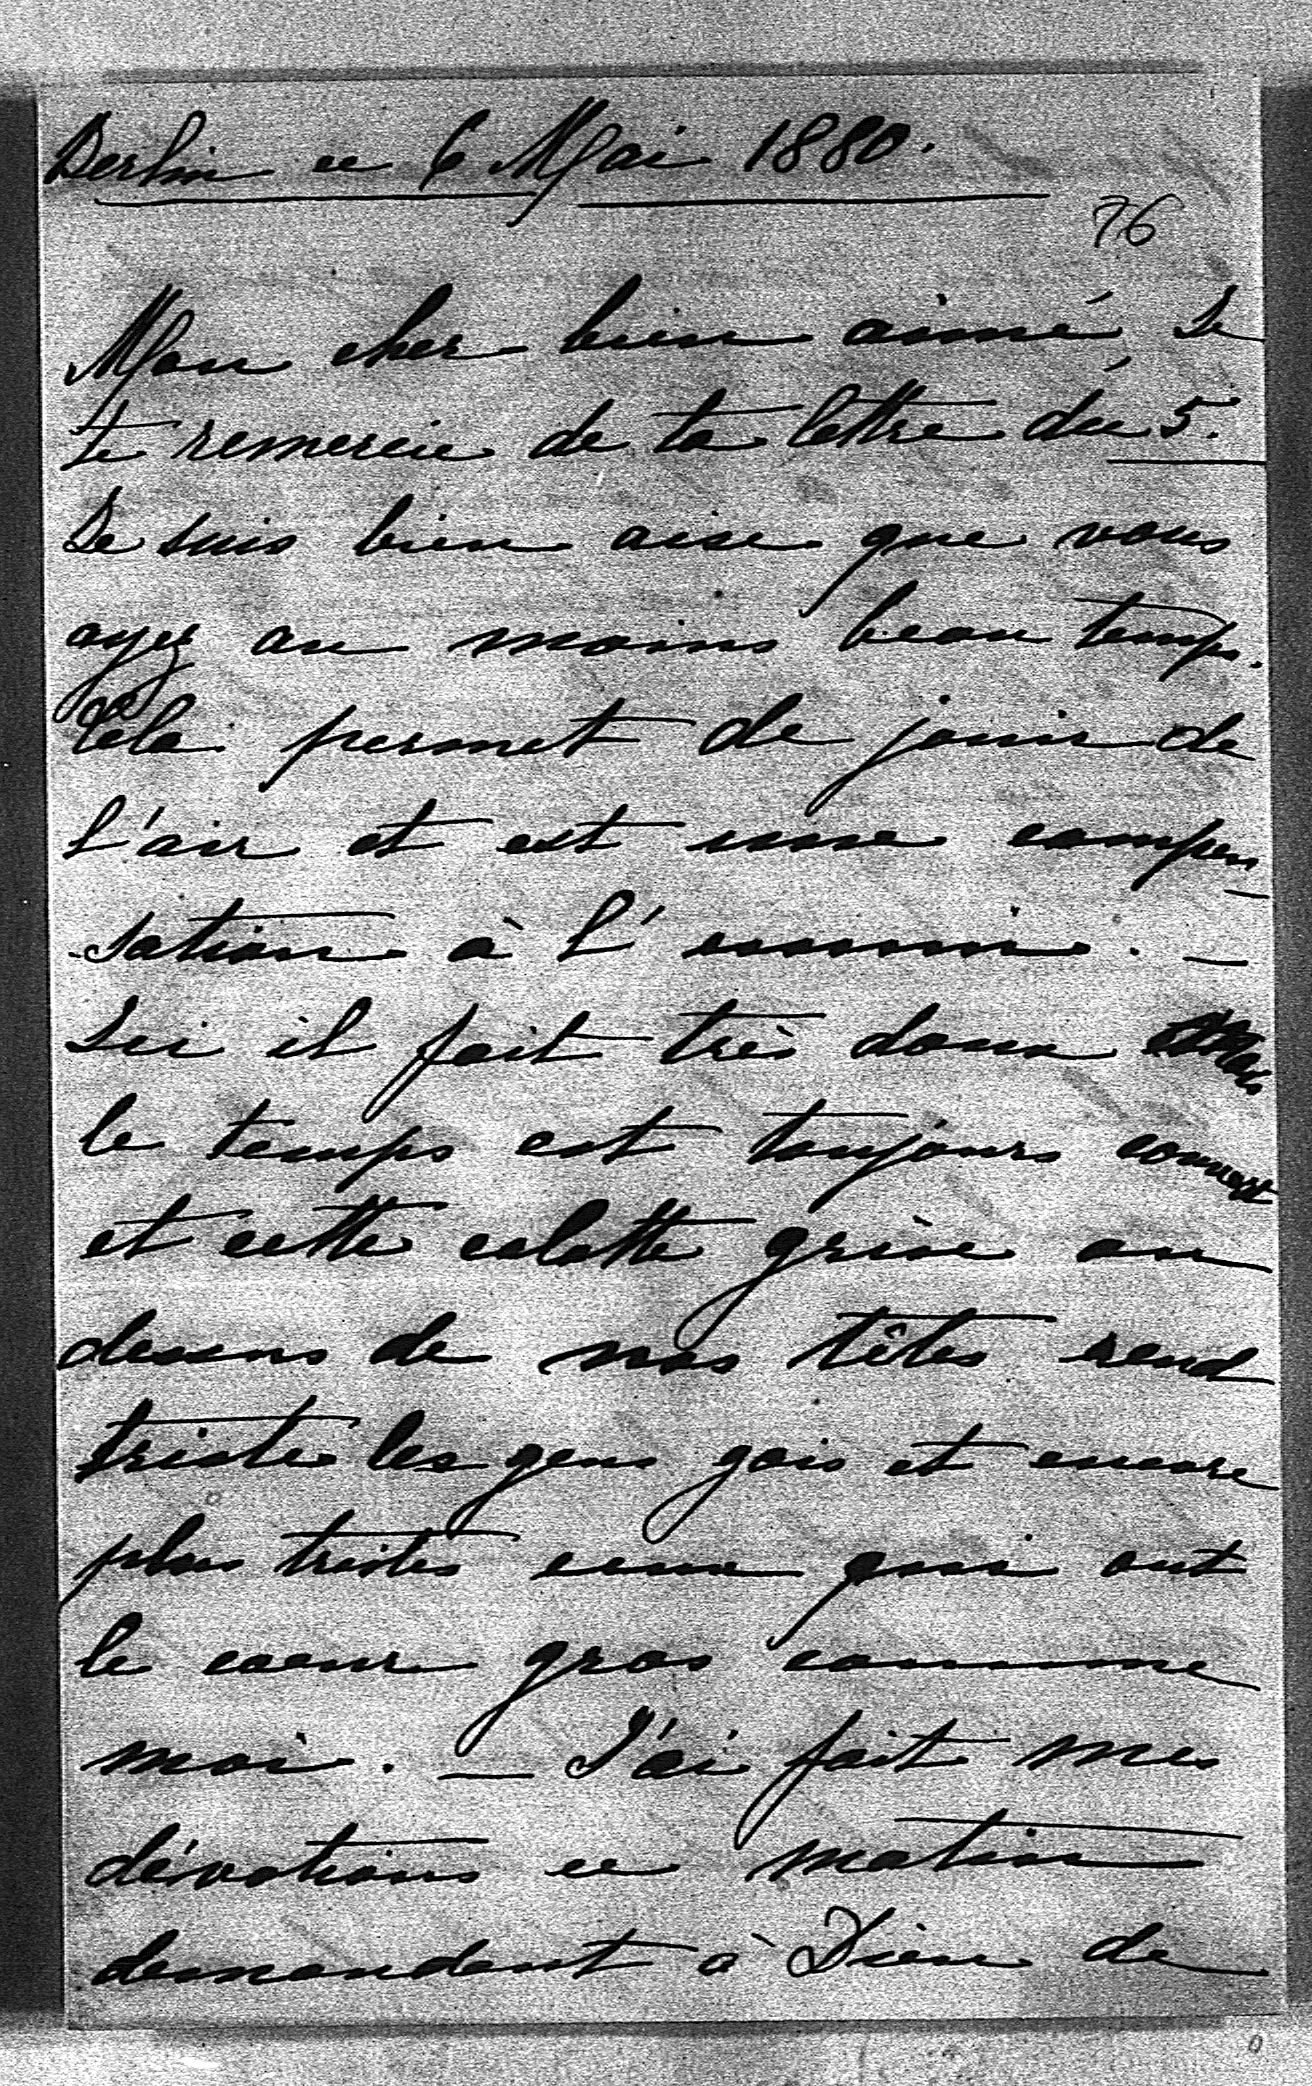 Berlin ce 6 Mai 1880.
76
Mon cher bien aimé, Je
te remercie de ta lettre du 5.
Je suis bien aise que vous
ayez au moins beau temps.
Cela permet de jouir de
l'air et est une compen
sation à l'ennui. —
Ici il fait très doux mais
le temps est toujours couvert
et cette calotte grise au
dessus de nos têtes rend
triste les gens gais et encore
plus tristes ceux qui ont
le coeur gros comme
moi. — J'ai fait mes
dévotions ce matin
demandant à Dieu de